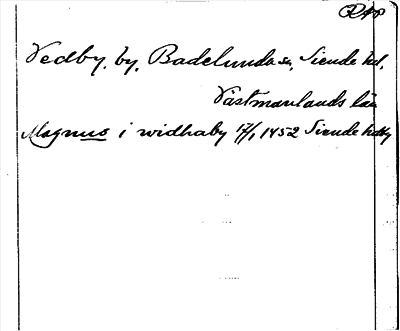 Vedby, by, Badelunda sn, Siende hd,
Västmanlands län
Magnus i widhaby 17/1 1452 Siende hdby